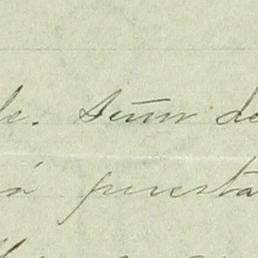 le. Señor de
á puesta